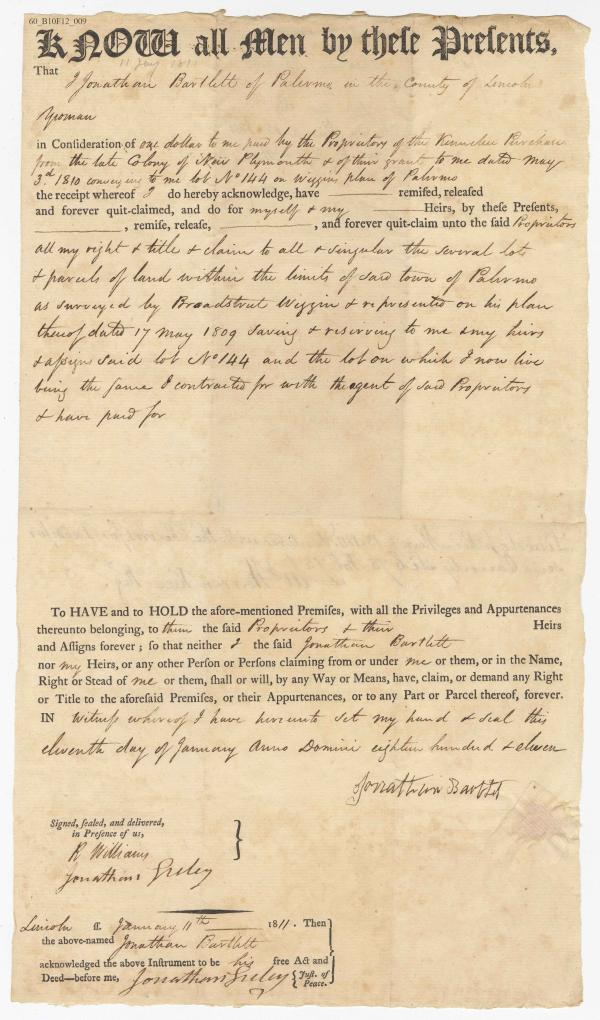 60_B10F12_009
KNOW all Men by theſe Preſents,
That
I Jonathan Bartlett of Palermo in the County of Lincoln
Yeoman
in Conſideration of one dollar to me paid by the Proprietors of the Kennebec Purchase
from the late Colony of New Plymouth & of their grant to me dated May
3.d 1810 conveying to me lot No 144 on Wiggins plan of Palermo
the receipt whereof I do hereby acknowledge, have remiſed, releaſed
and forever quit-claimed, and do for myself & my Heirs, by theſe Preſents,
, remiſe, releaſe, , and forever quit-claim unto the ſaid Proprietors
all my right & title & claim to all & singular the several lots
& parcels of land within the limits of said town of Palermo
as surveyed by Bradstreet Wiggin & represented on his plan
thereof dated 17 May 1809 saving & reserving to me & my heirs
& aſsigns said lot No 144 and the lot on which I now live
being the same I contracted for with the agent of said Proprietors
& have paid for
To HAVE and to HOLD the afore-mentioned Premiſes, with all the Privileges and Appurtenances
thereunto belonging, to them the ſaid Proprietors & their Heirs
and Aſſigns forever; ſo that neither I the ſaid Jonathan Bartlett
nor my Heirs, or any other Perſon or Perſons claiming from or under me or them, or in the Name,
Right or Stead of me or them, ſhall or will, by any Way or Means, have, claim, or demand any Right
or Title to the aforeſaid Premiſes, or their Appurtenances, or to any Part or Parcel thereof, forever.
IN Witneſs whereof I have hereunto set my hand & seal this
eleventh day of January Anno Domini eighteen hundred & eleven
Jonathan Bartlet
Signed, ſealed, and delivered,
in Preſence of us,
R Williams
Jonathan Greley
Lincoln ſſ. January 11th 1811. Then
the above-named Jonathan Bartlett
acknowledged the above Inſtrument to be his free Act and
Deed—before me, Jonathan Greley { Juſt. of
Peace.